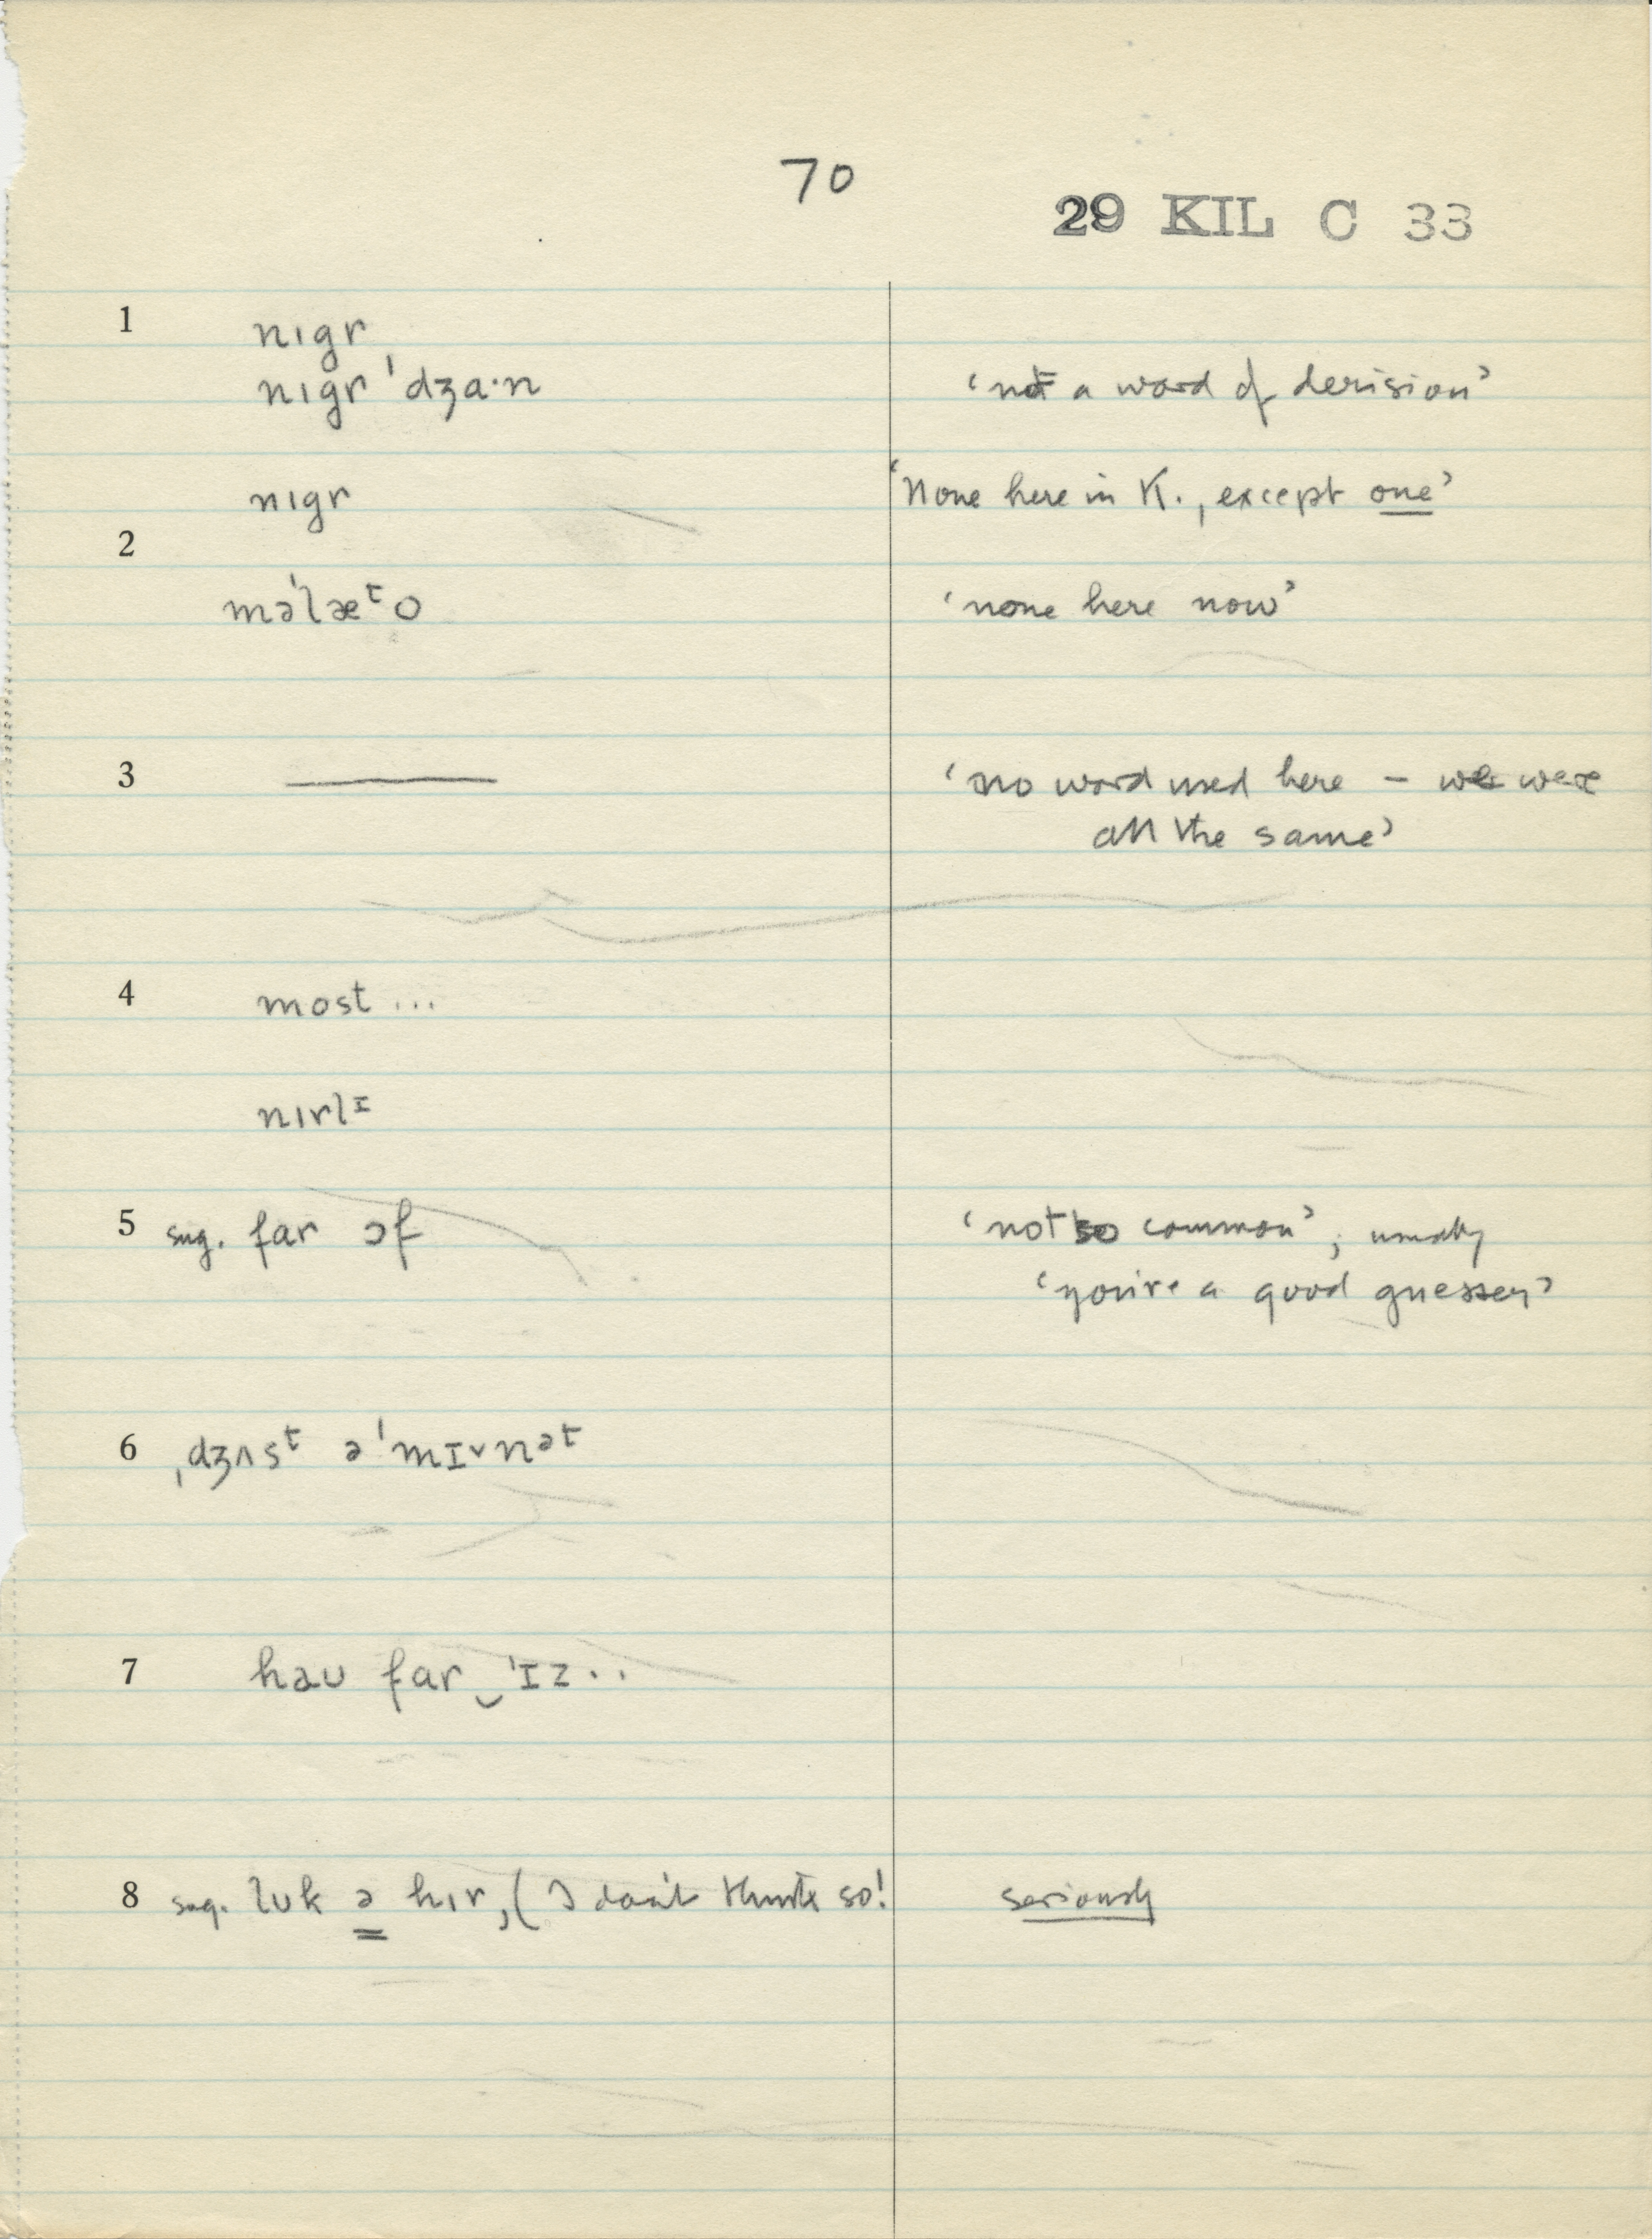 70
29 KIL C 33
1 nıgr
nıgr ˈdʒa·n ‘not a word of derision’
nıgr ‘None here in K., except one’
2
məˈlæᵗo ‘none here now’
3 ——— ‘no word used here – we were
all the same’
4 most ...
nırlᶦ
5 sug. far ɔf ‘not so common’, usually
‘you're a good guesser’
6 ˌdʒʌsᵗ əˈmɪ˅nᵊᵗ
7 hɑʊ far‿ˈɪz..
8 sug. lʊk ə hır, (I don't think so! seriously